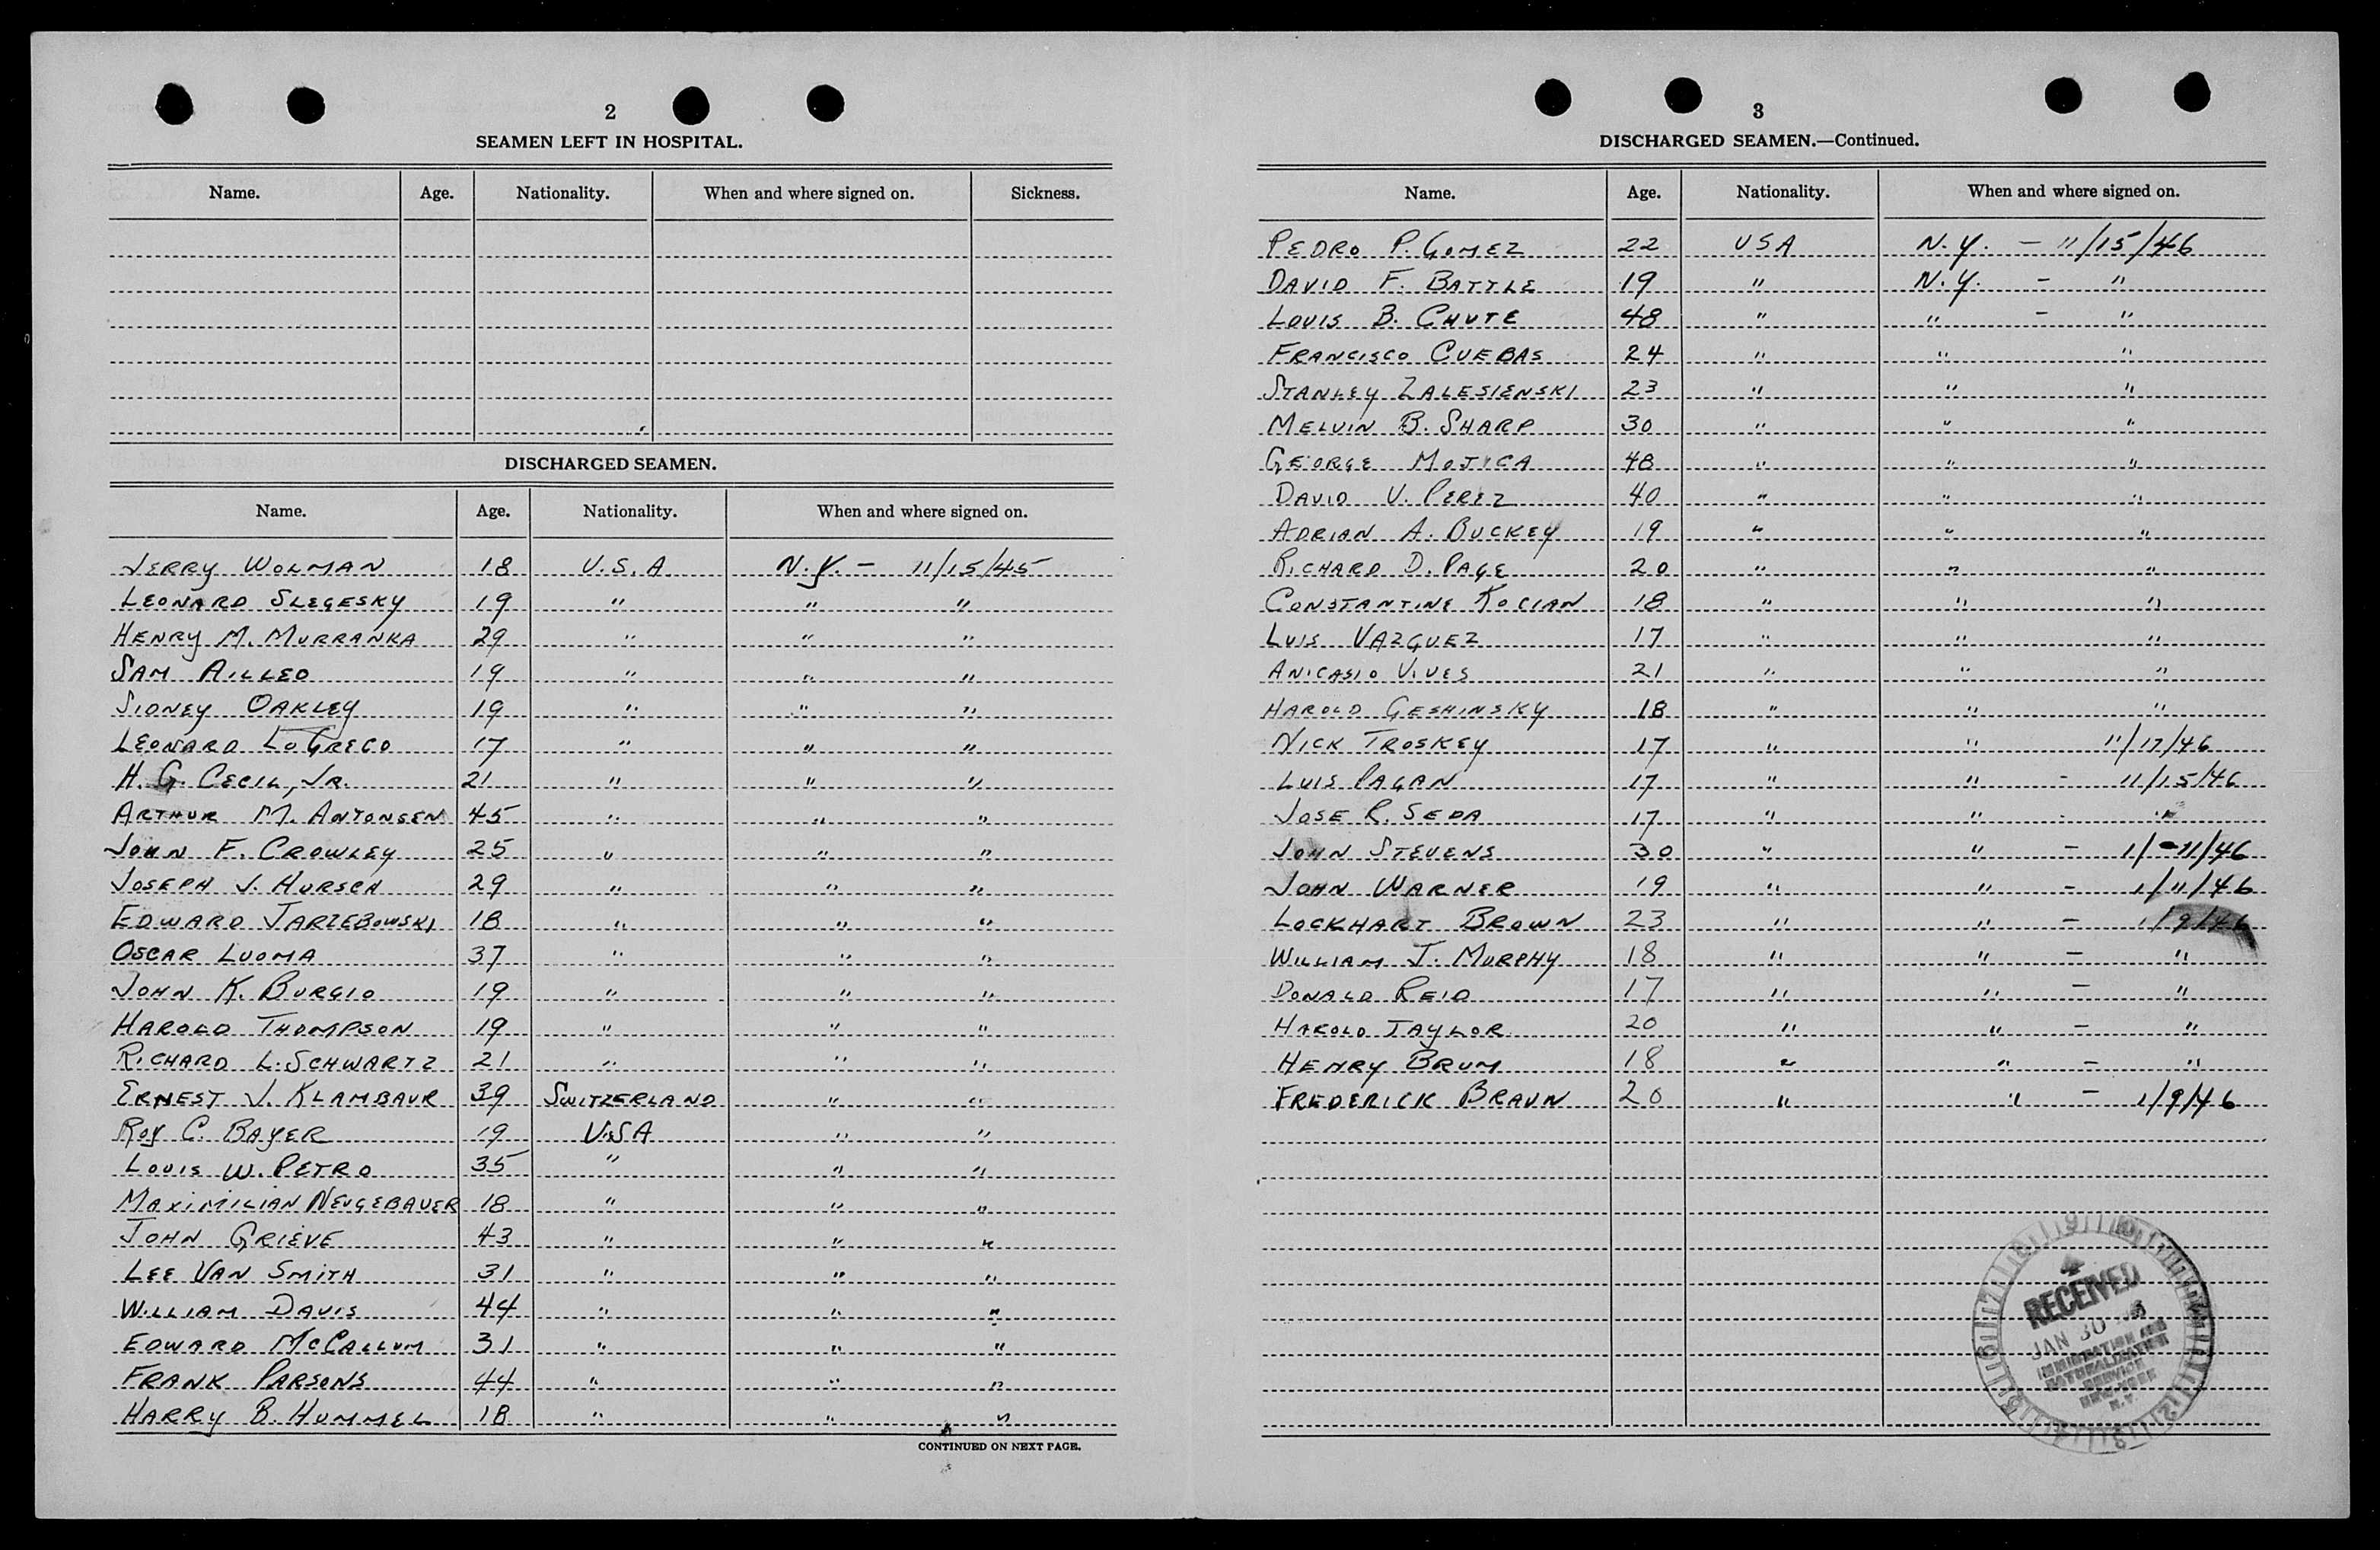 2
SEAMEN LEFT IN HOSPITAL.
Name. Age. Nationality. When and where signed on. Sickness.
DISCHARGED SEAMEN.
Name. Age. Nationality. When and where signed on.
JERRY WOLMAN 18 U.S.A N.Y. - 11/15/45
LEONARD SLEGESKY 19 " " "
HENRY M. MURRANKA 29 " " "
SAM AILLEO 19 " " "
SIDNEY OAKLEY 19 " " "
LEONARD LOGRECO 17 " " "
H. G. CECIL, JR. 21 " " "
ARTHUR M. ANTONSEN 45 " " "
JOHN F. CROWLEY 25 " " "
JOSEPH J. HURSCH 29 " " "
EDWARD JARZEBOWSKI 18 " " "
OSCAR LUOMA 37 " " "
JOHN K. BURGIO 19 " " "
HAROLD THOMPSON 19 " " "
RICHARD L. SCHWARTZ 21 " " "
ERNEST J. KLAMBAUR 39 SWITZERLAND " "
ROY C. BAYER 19 USA " "
LOUIS W. PETRO 35 " " "
MAXIMILIAN NEUGEBAUER 18 " " "
JOHN GRIEVE 43 " " "
LEE VAN SMITH 31 " " "
WILLIAM DAVIS 44 " " "
EDWARD MCCALLUM 31 " " "
FRANK PARSONS 44 " " "
HARRY B. HUMMEL 18 " " "
CONTINUED ON NEXT PAGE.
3
DISCHARGED SEAMEN.—Continued.
Name. Age. Nationality. When and where signed on.
PEDRO P. GOMEZ 22 USA N.Y. - 11/15/46
DAVID F. BATTLE 19 " N.Y. - "
LOUIS B. CHUTE 48 " " - "
FRANCISCO CUEBAS 24 " " "
STANLEY ZALESIENSKI 23 " " "
MELVIN B. SHARP 30 " " "
GEORGE MOJICA 48 " " "
DAVID V. PEREZ 40 " " "
ADRIAN A. BUCKEY 19 " " "
RICHARD D. PAGE 20 " " "
CONSTANTINE KOCIAN 18 " " "
LUIS VAZGUEZ 17 " " "
ANICASIO VIVES 21 " " "
HAROLD GESHINSKY 18 " " "
NICK TROSKEY 17 " " 11/17/46
LUIS PAGAN 17 " " - 11/15/46
JOSE R. SEDA 17 " " - "
JOHN STEVENS 30 " " - 1/-11/46
JOHN WARNER 19 " " - 1/11/46
LOCKHART BROWN 23 " " - 1/9/46
WILLIAM J. MURPHY 18 " " - "
DONALD REID 17 " " - "
HAROLD TAYLOR 20 " " - "
HENRY BRUM 18 " " - "
FREDERICK BRAUN 20 " " - 1/9/46
RECEIVED
JAN 30
IMMIGRATION AND
NATURALIZATION
SERVICE
NEW YORK
N.Y.